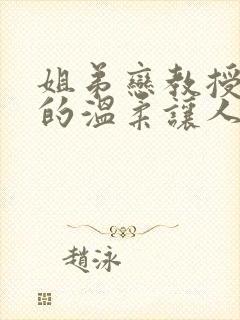 姐弟戀教授
的溫柔讓人
趙泳